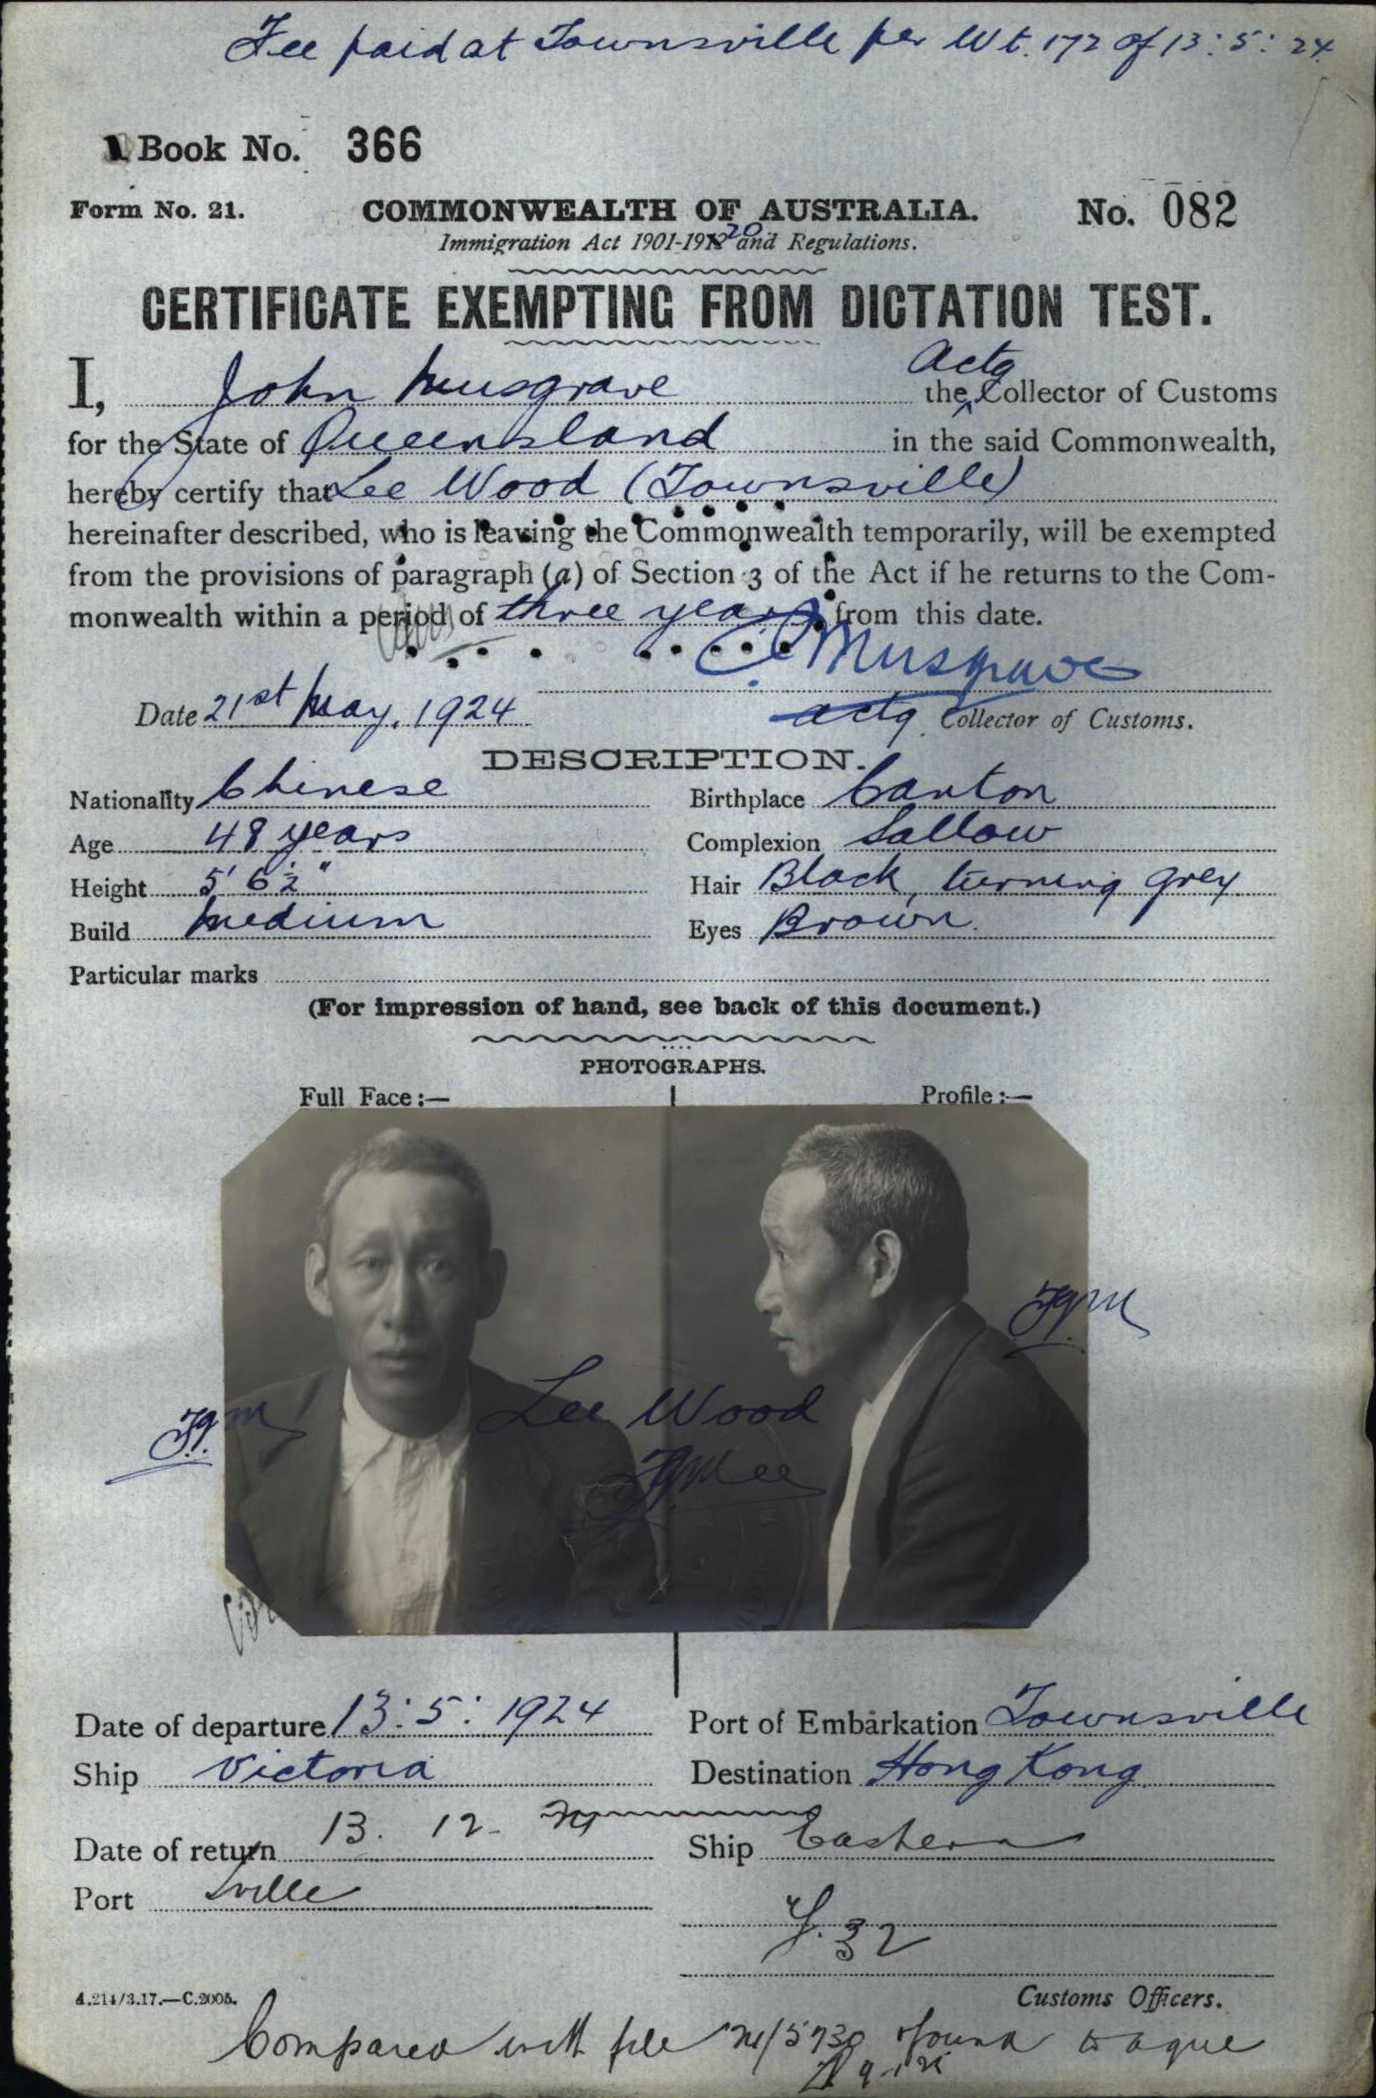 Fee paid at Townsville per Wt. 172 of 13:5:24
Book No. 366
Form No. 21.
COMMONWEALTH OF AUSTRALIA.
No. 082
Immigration Act 1901-1920 and Regulations.
CERTIFICATE EXEMPTING FROM DICTATION TEST.
I, John Musgrave the Actg Collector of Customs
for the State of Queensland in the said Commonwealth,
hereby certify that Lee Wood (Townsville)
hereinafter described, who is leaving the Commonwealth temporarily, will be exempted
from the provisions of paragraph (a) of Section 3 of the Act if he returns to the Com-
monwealth within a period of three years from this date.
Musgrave
Date 21st May, 1924
actg Collector of Customs.
DESCRIPTION.
Nationality Chinese
Birthplace Canton
Age 48 years
Complexion Sallow
Height 5' 6½"
Hair Black, turning grey
Build Medium
Eyes Brown.
Particular marks
(For impression of hand, see back of this document.)
PHOTOGRAPHS.
Full Face:—
Profile:—
Lee Wood
Date of departure 13:5:1924
Port of Embarkation Townsville
Ship Victoria
Destination Hong Kong
Date of return 13. 12. 24
Ship Eastern
Port Tville
32
A.214/3.17.—C.2005.
Customs Officers.
Compared with file 24/5730 found to agree